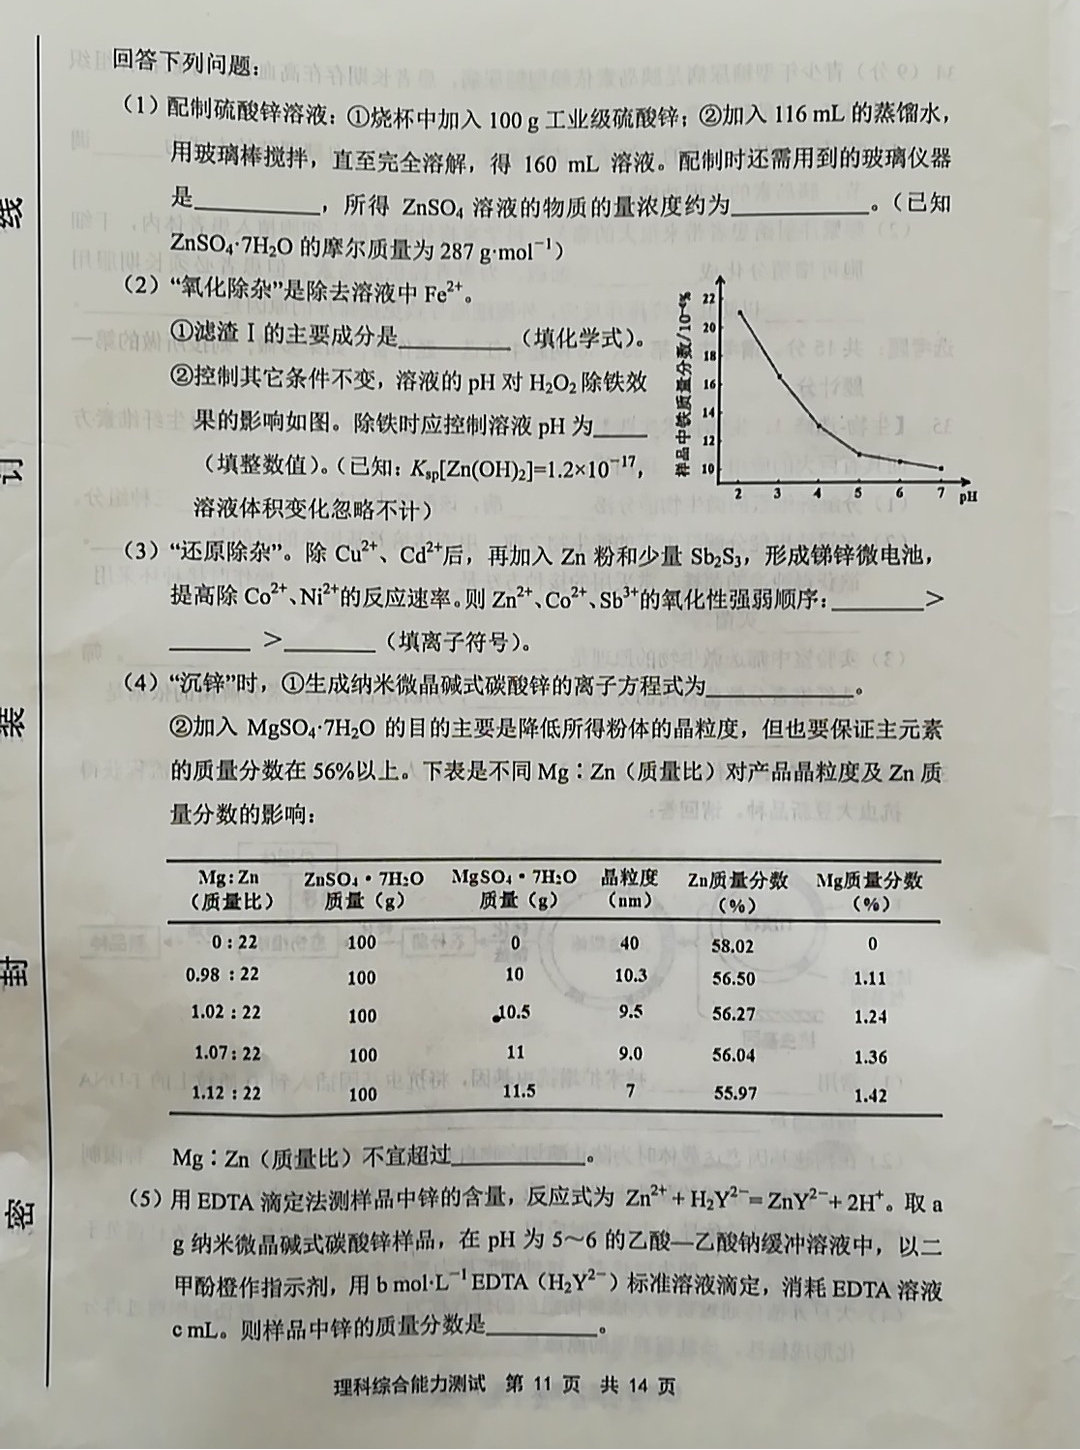 回答下列问题：
（1）配制硫酸锌溶液：①烧杯中加入 100 g 工业级硫酸锌；②加入 116 mL 的蒸馏水，
用玻璃棒搅拌，直至完全溶解，得 160 mL 溶液。配制时还需用到的玻璃仪器
是________，所得 ZnSO₄ 溶液的物质的量浓度约为________。（已知
ZnSO₄·7H₂O 的摩尔质量为 287 g·mol⁻¹）
（2）“氧化除杂”是除去溶液中 Fe²⁺。
①滤渣 I 的主要成分是________（填化学式）。
②控制其它条件不变，溶液的 pH 对 H₂O₂ 除铁效
果的影响如图。除铁时应控制溶液 pH 为____
（填整数值）。（已知：Ksp[Zn(OH)₂]=1.2×10⁻¹⁷，
溶液体积变化忽略不计）
样品中铁质量分数/10⁻⁴%
22
20
18
16
14
12
10
2 3 4 5 6 7 pH
（3）“还原除杂”。除 Cu²⁺、Cd²⁺后，再加入 Zn 粉和少量 Sb₂S₃，形成锑锌微电池，
提高除 Co²⁺、Ni²⁺的反应速率。则 Zn²⁺、Co²⁺、Sb³⁺的氧化性强弱顺序：______>
______>______（填离子符号）。
（4）“沉锌”时，①生成纳米微晶碱式碳酸锌的离子方程式为________。
②加入 MgSO₄·7H₂O 的目的主要是降低所得粉体的晶粒度，但也要保证主元素
的质量分数在 56%以上。下表是不同 Mg∶Zn（质量比）对产品晶粒度及 Zn 质
量分数的影响：
Mg:Zn ZnSO₄·7H₂O MgSO₄·7H₂O 晶粒度 Zn质量分数 Mg质量分数
（质量比） 质量（g） 质量（g） （nm） （%） （%）
0:22 100 0 40 58.02 0
0.98:22 100 10 10.3 56.50 1.11
1.02:22 100 10.5 9.5 56.27 1.24
1.07:22 100 11 9.0 56.04 1.36
1.12:22 100 11.5 7 55.97 1.42
Mg∶Zn（质量比）不宜超过________。
（5）用 EDTA 滴定法测样品中锌的含量，反应式为 Zn²⁺+H₂Y²⁻=ZnY²⁻+2H⁺。取 a
g 纳米微晶碱式碳酸锌样品，在 pH 为 5～6 的乙酸—乙酸钠缓冲溶液中，以二
甲酚橙作指示剂，用 b mol·L⁻¹EDTA（H₂Y²⁻）标准溶液滴定，消耗 EDTA 溶液
c mL。则样品中锌的质量分数是________。
理科综合能力测试 第 11 页 共 14 页
线
订
装
封
密